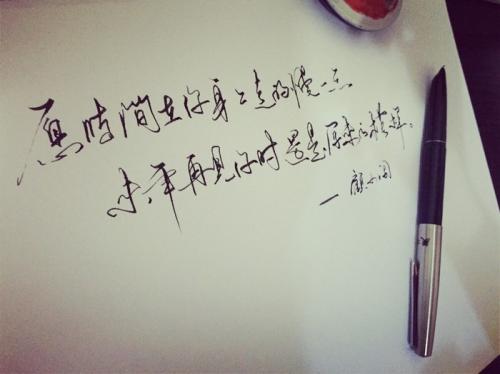 愿时间在你身上走的慢一点
来年再见你时还是原来的模样。
—顾